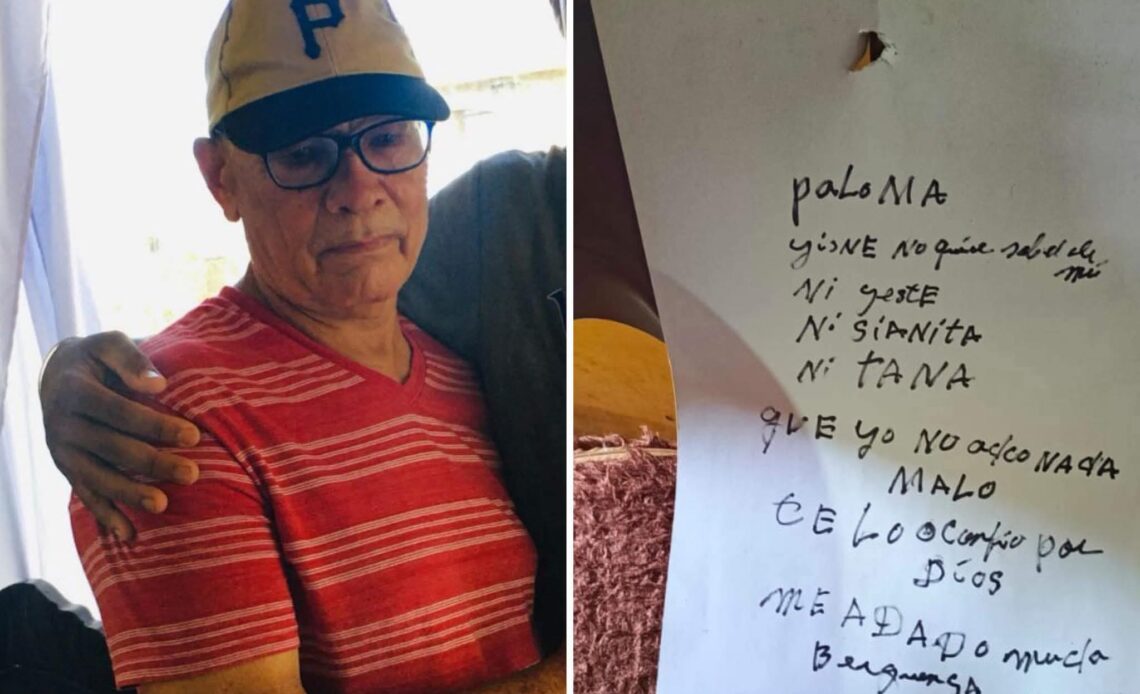 P
paLoMA
yisNE No quiere sabel de
mi
Ni yestE
Ni SiANitA
Ni TANA
qUE yo NO agco NAdA
MALO
tE Lo o confio por
Dios
ME ADADO mucha
Berguensa